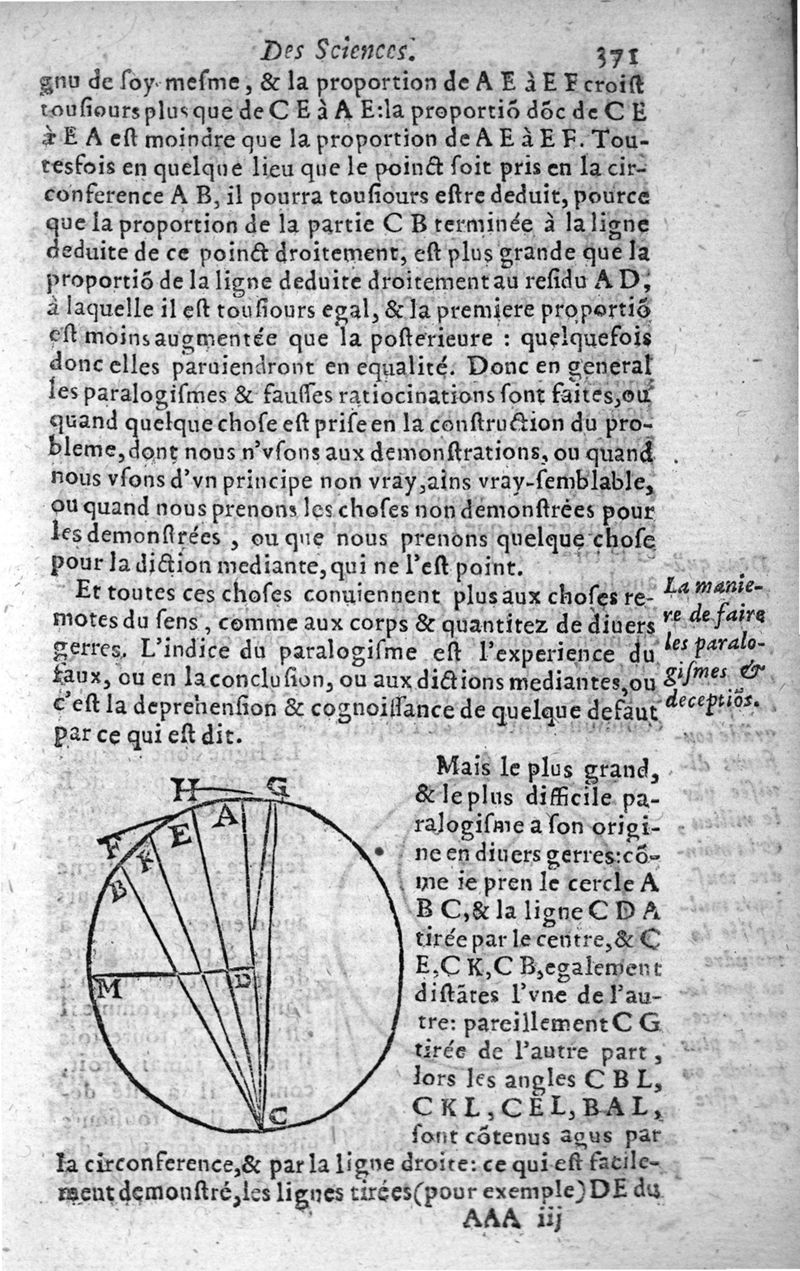 Des Sciences. 371
gnu de ſoy meſme, & la proportion de A E à E F croiſt
touſiours plus que de C E à A E: la proportiõ dõc de C E
à E A eſt moindre que la proportion de A E à E F. Tou-
tesfois en quelque lieu que le poinct ſoit pris en la cir-
conference A B, il pourra touſiours eſtre deduit, pource
que la proportion de la partie C B terminée à la ligne
deduite de ce poinct droitement, eſt plus grande que la
proportiõ de la ligne deduite droitement au reſidu A D,
à laquelle il eſt touſiours egal, & la premiere proportiõ
eſt moins augmentée que la poſterieure : quelquefois
donc elles paruiendront en equalité. Donc en general
les paralogiſmes & fauſſes ratiocinations ſont faites, ou
quand quelque choſe eſt priſe en la conſtruction du pro-
bleme, dont nous n'vſons aux demonſtrations, ou quand
nous vſons d'vn principe non vray, ains vray-ſemblable,
ou quand nous prenons les choſes non demonſtrées pour
les demonſtrées , ou que nous prenons quelque choſe
pour la diction mediante, qui ne l'eſt point.
Et toutes ces choſes conuiennent plus aux choſes re-
motes du ſens , comme aux corps & quantitez de diuers
gerres. L'indice du paralogiſme eſt l'experience du
faux, ou en la concluſion, ou aux dictions mediantes, ou
c'eſt la deprehenſion & cognoiſſance de quelque defaut
par ce qui eſt dit.
La manie-
re de faire
les paralo-
giſmes &
deceptiõs.
Mais le plus grand,
& le plus difficile pa-
ralogiſme a ſon origi-
ne en diuers gerres: cõ-
me ie pren le cercle A
B C, & la ligne C D A
tirée par le centre, & C
E, C K, C B, egalement
diſtãtes l'vne de l'au-
tre: pareillement C G
tirée de l'autre part ,
lors les angles C B L,
C K L, C E L, B A L,
ſont cõtenus agus par
H G
A
E
F
K
B
M
D
C
la circonference, & par la ligne droite: ce qui eſt facile-
ment demonſtré, les lignes tirées (pour exemple) D E du
AAA iij